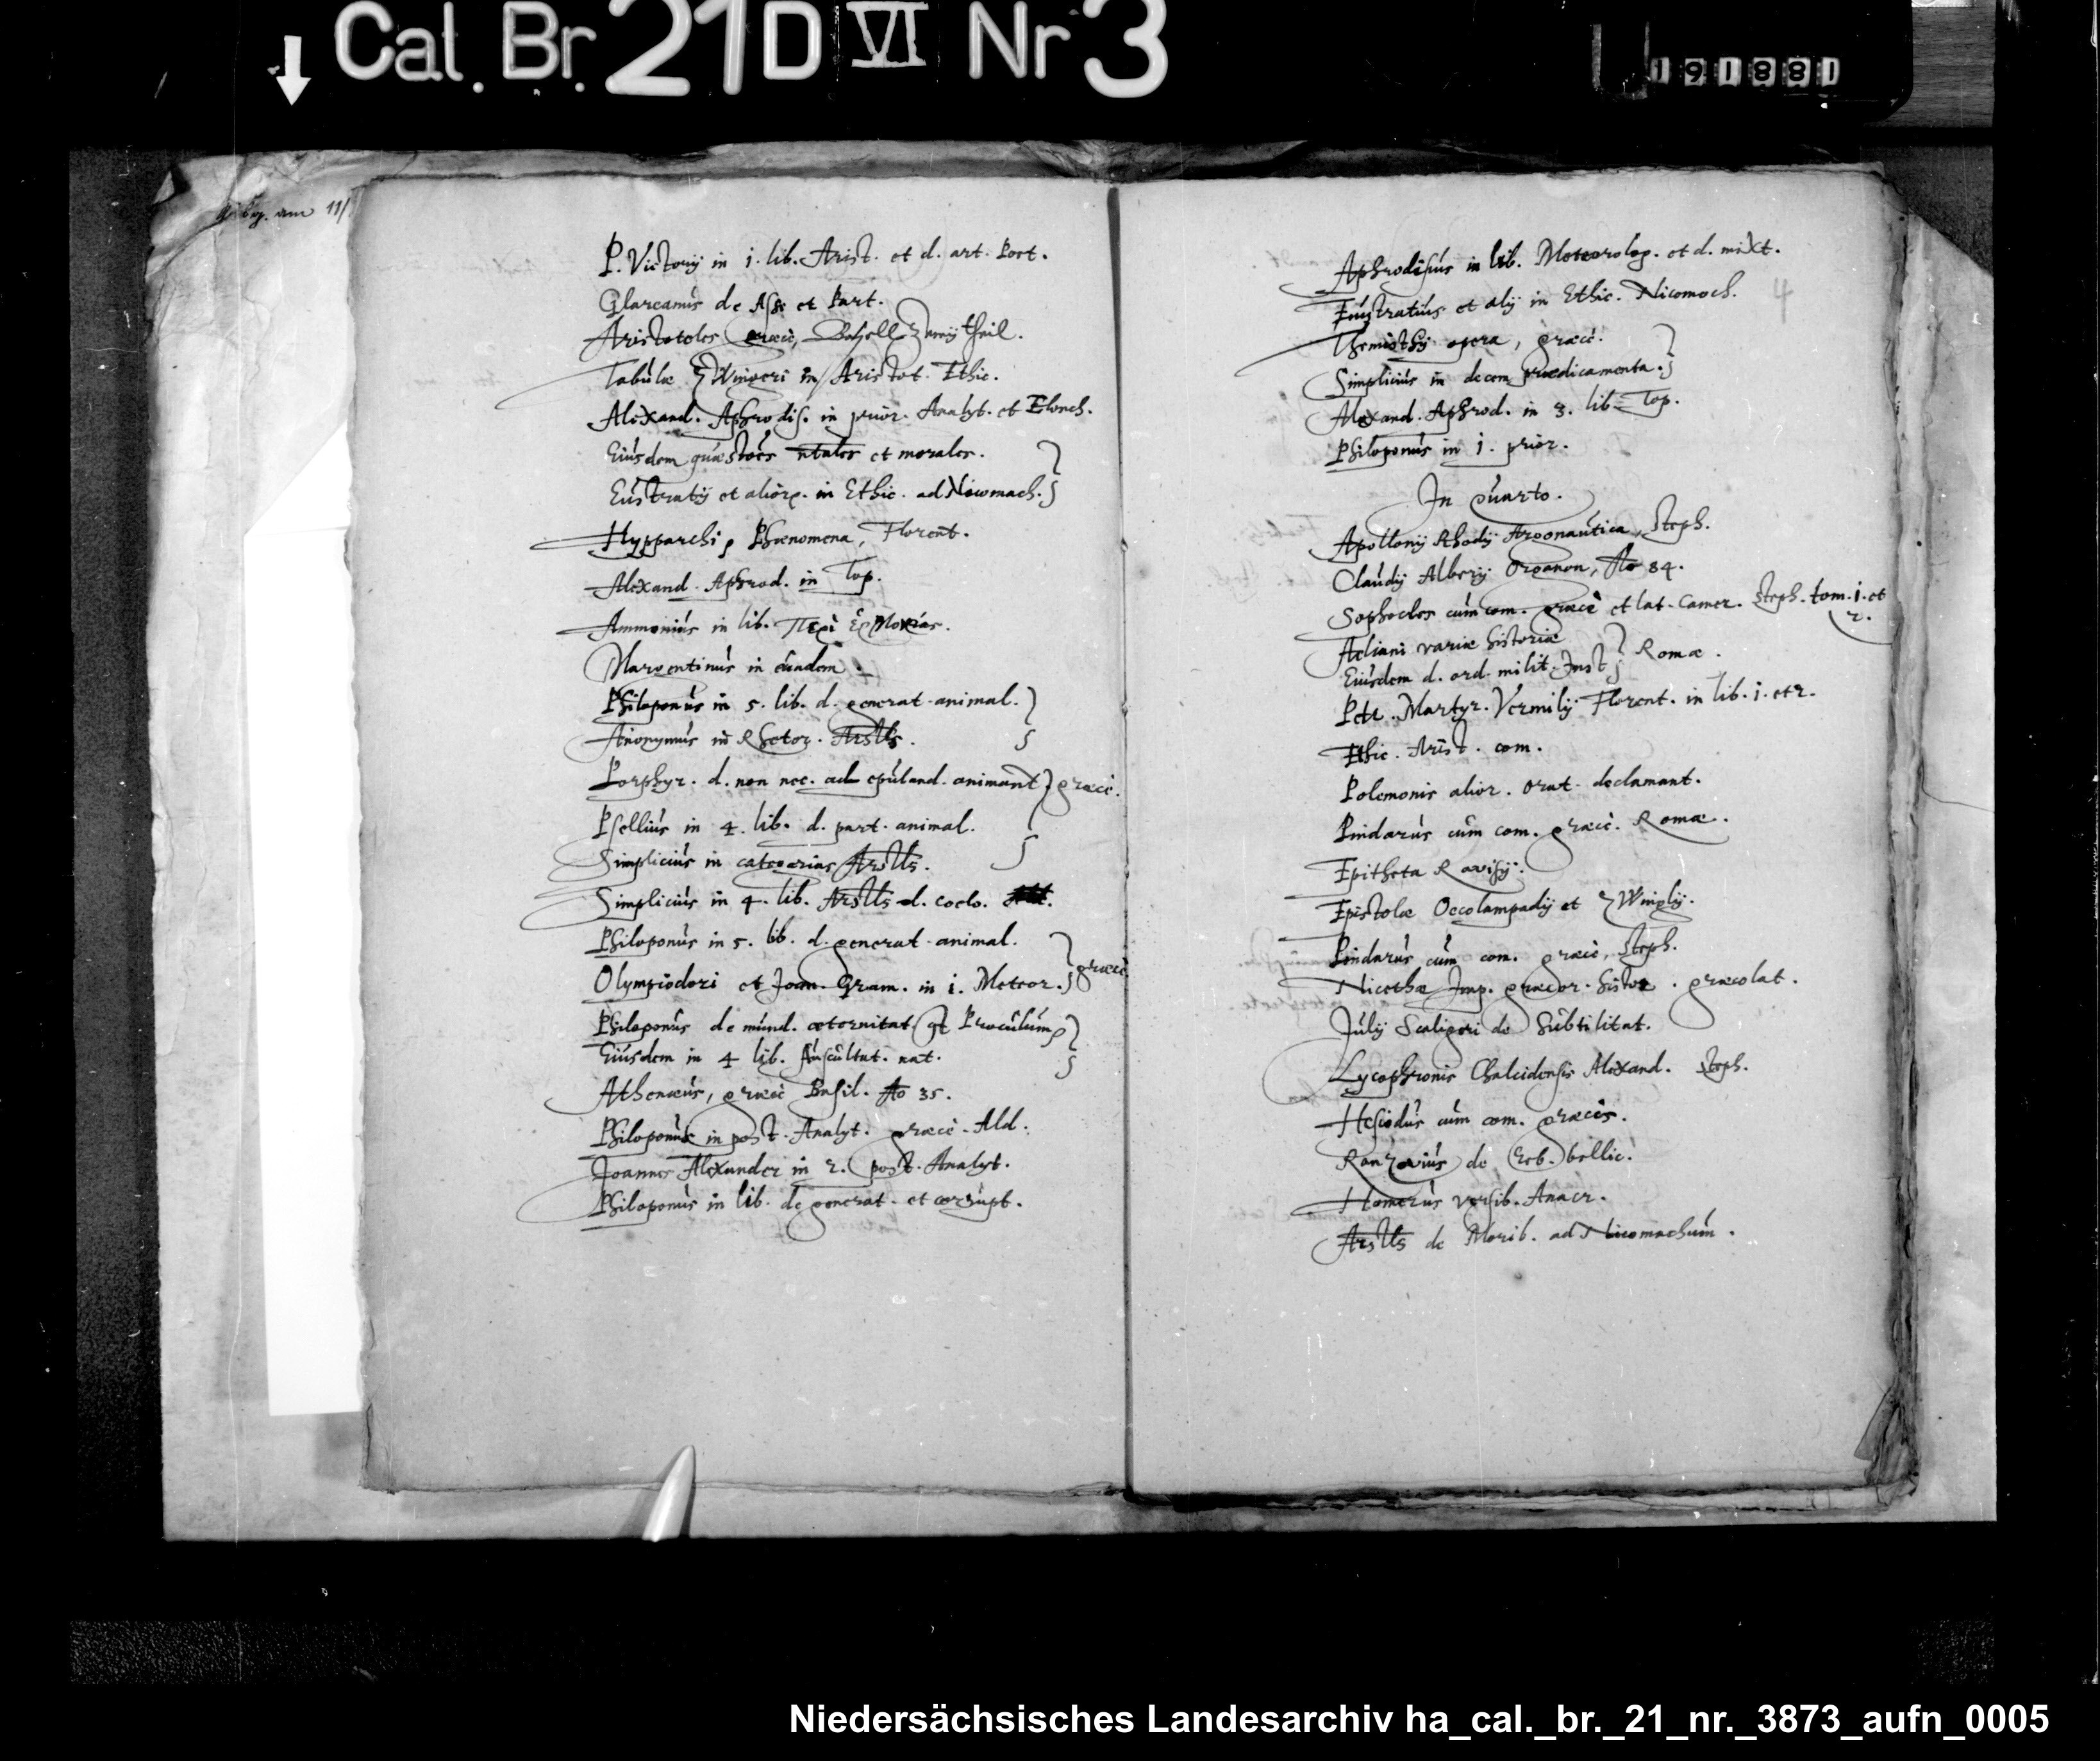 Cat. Br. 21 D VI Nr 3
191881
P. Victorij in 1. lib. Arist. et d. art. Poet.
Glareanus de Asse et Part.
Aristoteles græcè,
Tabulæ Zwingeri in Aristot. Ethic.
Alexand. Aphrodis. in prior. Analyt. et Elench.
Eiusdem quæstões ntales et morales.
Eustratij et alior. in Ethic. ad Nicomach.
Hypparchi, Phænomena, Florent.
Alexand. Aphrod. in Top.
Ammonius in lib. Περὶ ἑρμηνείας.
Margentinus in eandem.
Philoponus in 5. lib. d. generat. animal.
Anonymus in Rhetor. Arstls.
Porphyr. d. non nec. ad epuland. animant græcè.
Psellius in 4. lib. d. part. animal.
Simplicius in categorias Arstls.
Simplicius in 4. lib. Arstls d. coelo.
Philoponus in 5. lib. d. generat. animal.
Olympiodori et Joan. Gram. in 1. Meteor. græcè
Philoponus de mund. æternitat. Proculum
Eiusdem in 4 lib. Auscultat. nat.
Athenæus, græcè Basil. Ao 35.
Philoponus in post. Analyt. græcè. Ald.
Joannes Alexander in 2. post. Analyt.
Philoponus in lib. de generat. et corrupt.
4
Aphrodisius in lib. Meteorolog. et d. mixt.
Eustratius et alij in Ethic. Nicomach.
Themistij opera, græcè.
Simplicius in decem prædicamenta.
Alexand. Aphrod. in 3. lib. Top.
Philoponus in 1. prior.
In quarto.
Apollonij Rhodij Argonautica, Steph.
Claudij Alberij Organon, Ao 84.
Sophocles cum com. græcè et lat. Camer. Steph. tom. 1. et
2.
Aeliani variæ historiæ
Eiusdem d. ord. milit. Inst Romæ.
Petr. Martyr. Vermilij Florent. in lib. 1. et 2.
Ethic. Arist. com.
Polemonis alior. orat. declamant.
Pindarus cum com. græcè. Romæ.
Epitheta Ravisij.
Epistolæ Oecolampadij et Zwinglij.
Pindarus cum com. græcè, Steph.
Nicethæ Imp. græcor. histor. græcolat.
Julij Scaligeri de Subtilitat.
Lycophronis Chalcidensis Alexand. Steph.
Hesiodus cum com. græcis.
Ranzovius de reb. bellic.
Homerus versib. Anacr.
Arstls de Morib. ad Nicomachum.
Niedersächsisches Landesarchiv ha_cal._br._21_nr._3873_aufn_0005